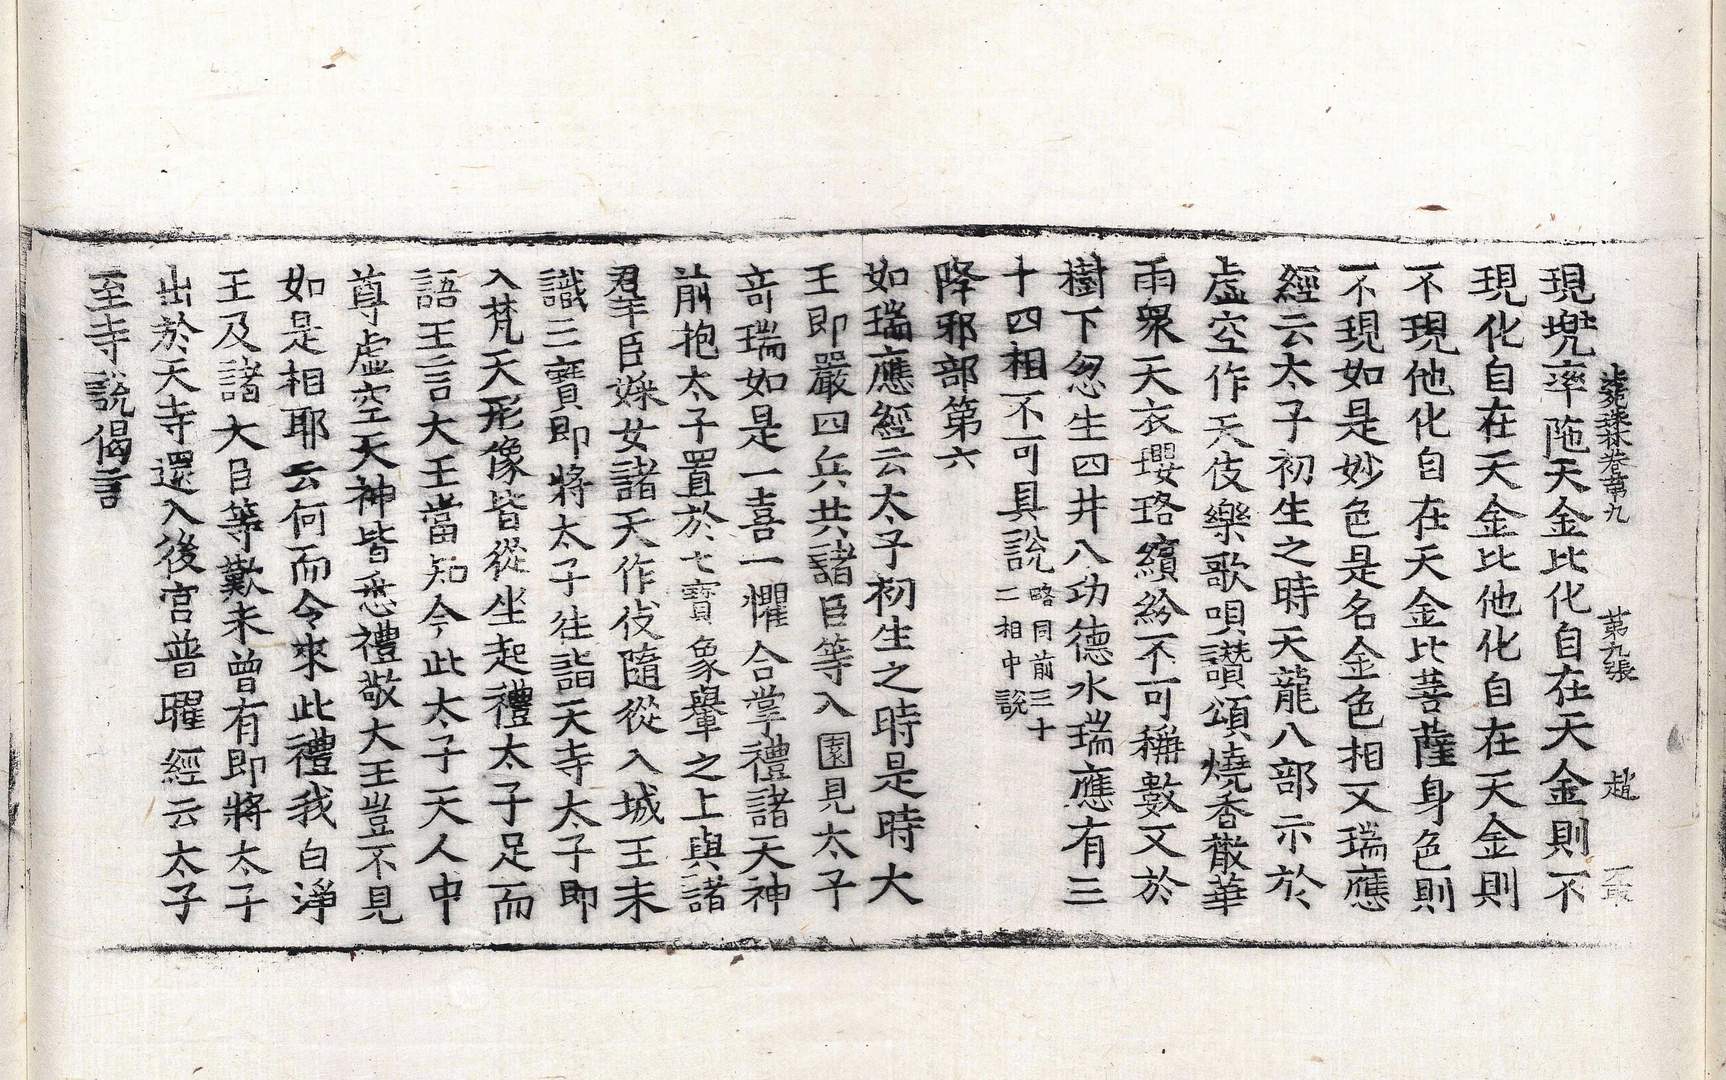 法苑珠林卷第九 第九張 趙
現兜率陁天金比化自在天金則不
現化自在天金比他化自在天金則
不現他化自在天金比菩薩身色則
不現如是妙色是名金色相又瑞應
經云太子初生之時天龍八部示於
虛空作天伎樂歌唄讚頌燒香散華
雨衆天衣瓔珞繽紛不可稱數又於
樹下忽生四井八功德水瑞應有三
十四相不可具說略同前三十二相中說
降邪部第六
如瑞應經云太子初生之時是時大
王即嚴四兵共諸臣等入園見太子
奇瑞如是一喜一懼合掌禮諸天神
前抱太子置於七寶象轝之上與諸
羣臣婇女諸天作伎隨從入城王未
識三寶即將太子往詣天寺太子即
入梵天形像皆從坐起禮太子足而
語王言大王當知今此太子天人中
尊虛空天神皆悉禮敬大王豈不見
如是相耶云何而令來此禮我白淨
王及諸大臣等歎未曾有即將太子
出於天寺還入後宮普曜經云太子
至寺說偈言